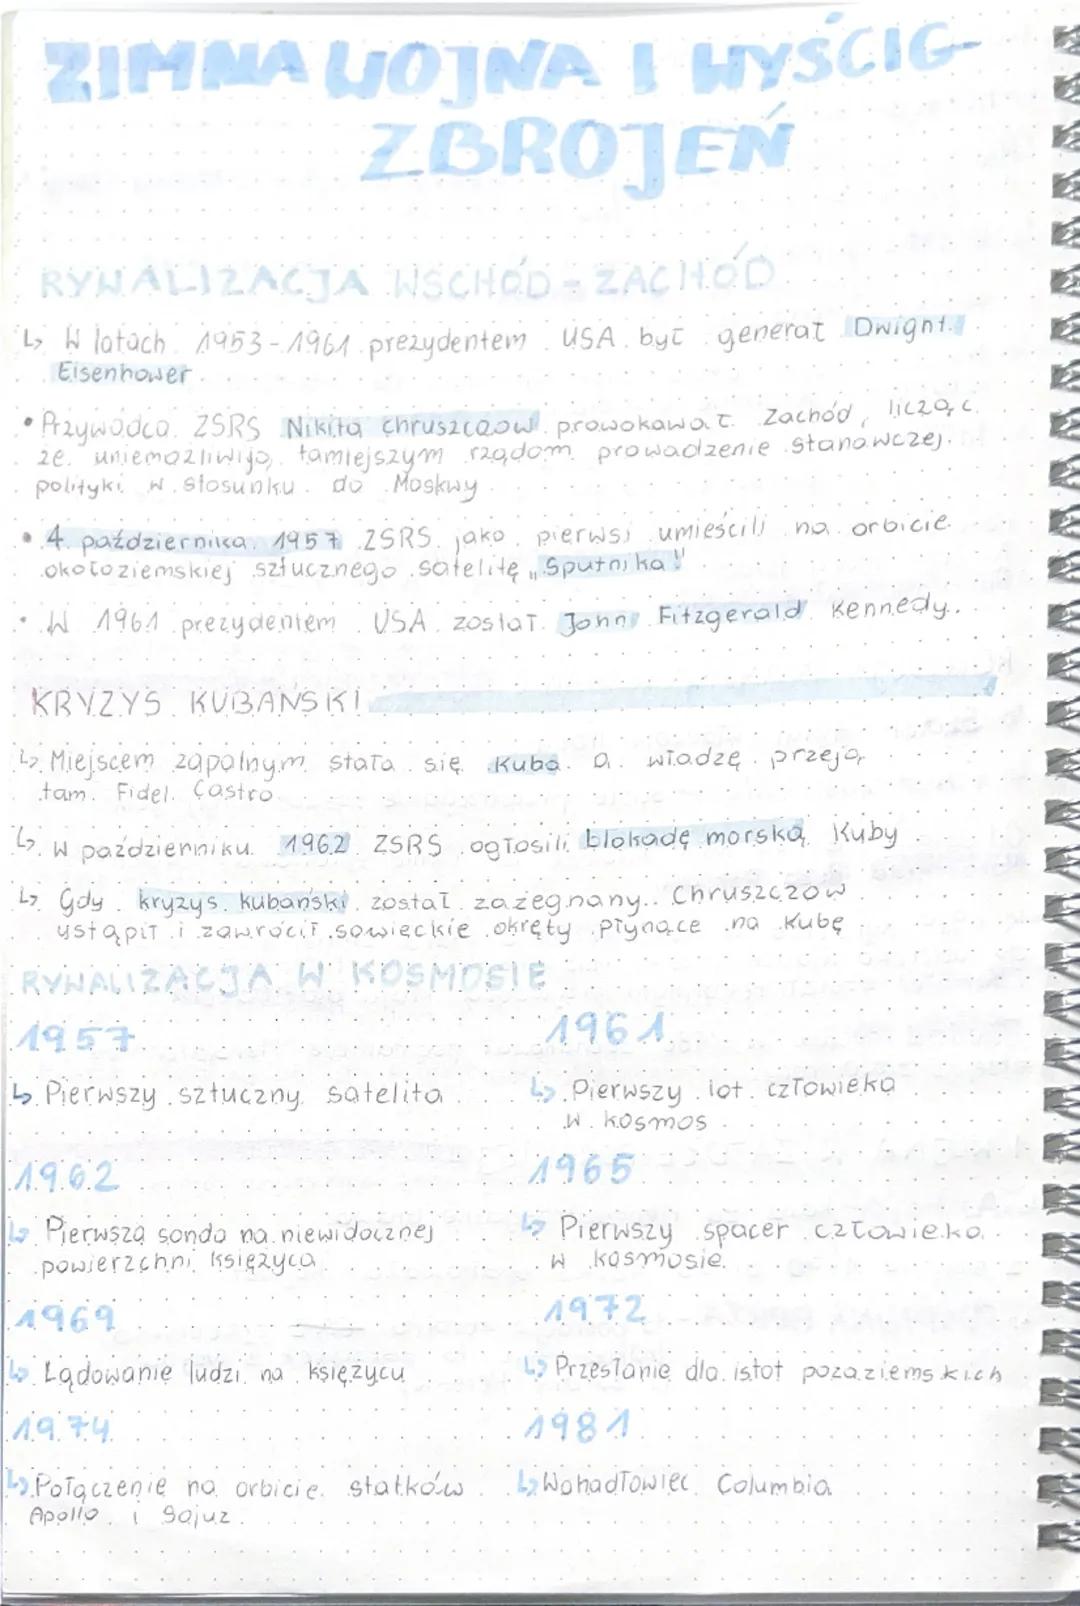 ZIMNA WOJNA I WYŚCIG
ZBROJEŃ
RYWALIZACJA WSCHÓD - ZACHÓD
↳ W latach 1953-1961 prezydentem USA był generał Dwight
Eisenhower
• Przywódca ZSRS Nikita Chruszczow prowokował Zachód, licząc
że uniemożliwiją tamiejszym rządom prowadzenie stanowczej
polityki w stosunku do Moskwy
• 4 października 1957 ZSRS jako pierwsi umieścili na orbicie
okołoziemskiej sztucznego satelitę „Sputnika"
• W 1961 prezydentem USA został John Fitzgerald Kennedy.
KRYZYS KUBAŃSKI
↳ Miejscem zapalnym stała się Kuba a władzę przejął
tam Fidel Castro
↳ W październiku 1962 ZSRS ogłosili blokadę morską Kuby
↳ Gdy kryzys kubański został zażegnany. Chruszczow
ustąpił i zawrócił sowieckie okręty płynące na Kubę
RYWALIZACJA W KOSMOSIE
1957
↳ Pierwszy sztuczny satelita
1961
↳ Pierwszy lot człowieka
w kosmos
1962
↳ Pierwsza sonda na niewidocznej
powierzchni księżyca
1965
↳ Pierwszy spacer człowieka
w kosmosie.
1969
↳ Lądowanie ludzi na księżycu
1972
↳ Przesłanie dla istot pozaziemskich
1974
↳ Połączenie na orbicie statków
Apollo i Sojuz
1981
↳ Wahadłowiec Columbia